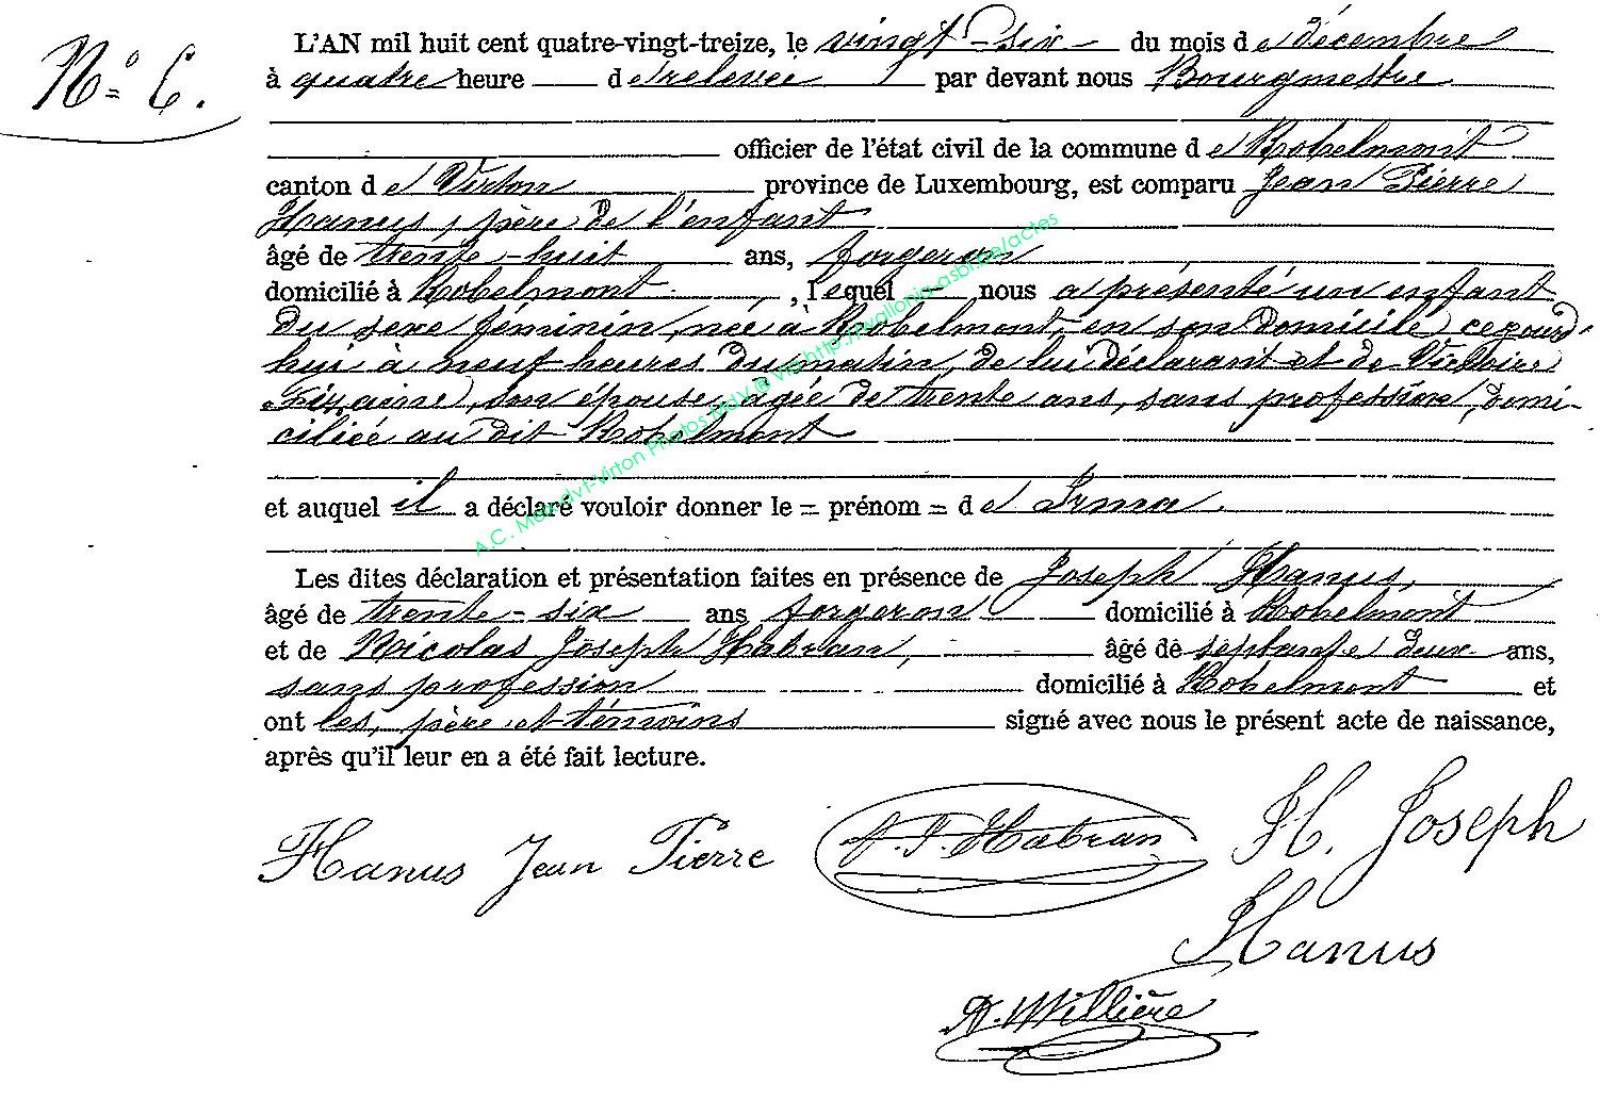 N° 6.
L'AN mil huit cent quatre-vingt-treize, le vingt-six du mois de décembre
à quatre heure de relevée par devant nous Bourgmestre
officier de l'état civil de la commune de Robelmont
canton de Virton province de Luxembourg, est comparu Jean Pierre
Hanus, père de l'enfant
âgé de trente-huit ans, forgeron
domicilié à Robelmont, lequel nous a présenté un enfant
du sexe féminin, née à Robelmont, en son domicile, cejourd'
hui à neuf heures du matin, de lui déclarant et de Victoire
son épouse, agée de trente ans, sans profession, domi-
ciliée au dit Robelmont
et auquel il a déclaré vouloir donner le = prénom = de Irma
Les dites déclaration et présentation faites en présence de Joseph Hanus,
âgé de trente-six ans forgeron domicilié à Robelmont
et de Nicolas Joseph Habran, âgé de septante deux ans,
sans profession domicilié à Robelmont et
ont les, père et témoins signé avec nous le présent acte de naissance,
après qu'il leur en a été fait lecture.
Hanus Jean Pierre
N. J. Habran
H. Joseph
Hanus
A. Willière
A.C. Mex-dvt-Virton Photos MdV @ vig http://wallonia-asbl.be/actes